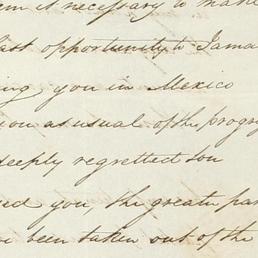 em it necessary to make
last opportunity to Jama
ing, you in Mexico
you as usual of the progr
deeply regretted son
ed you, the greater par
been taken out of the